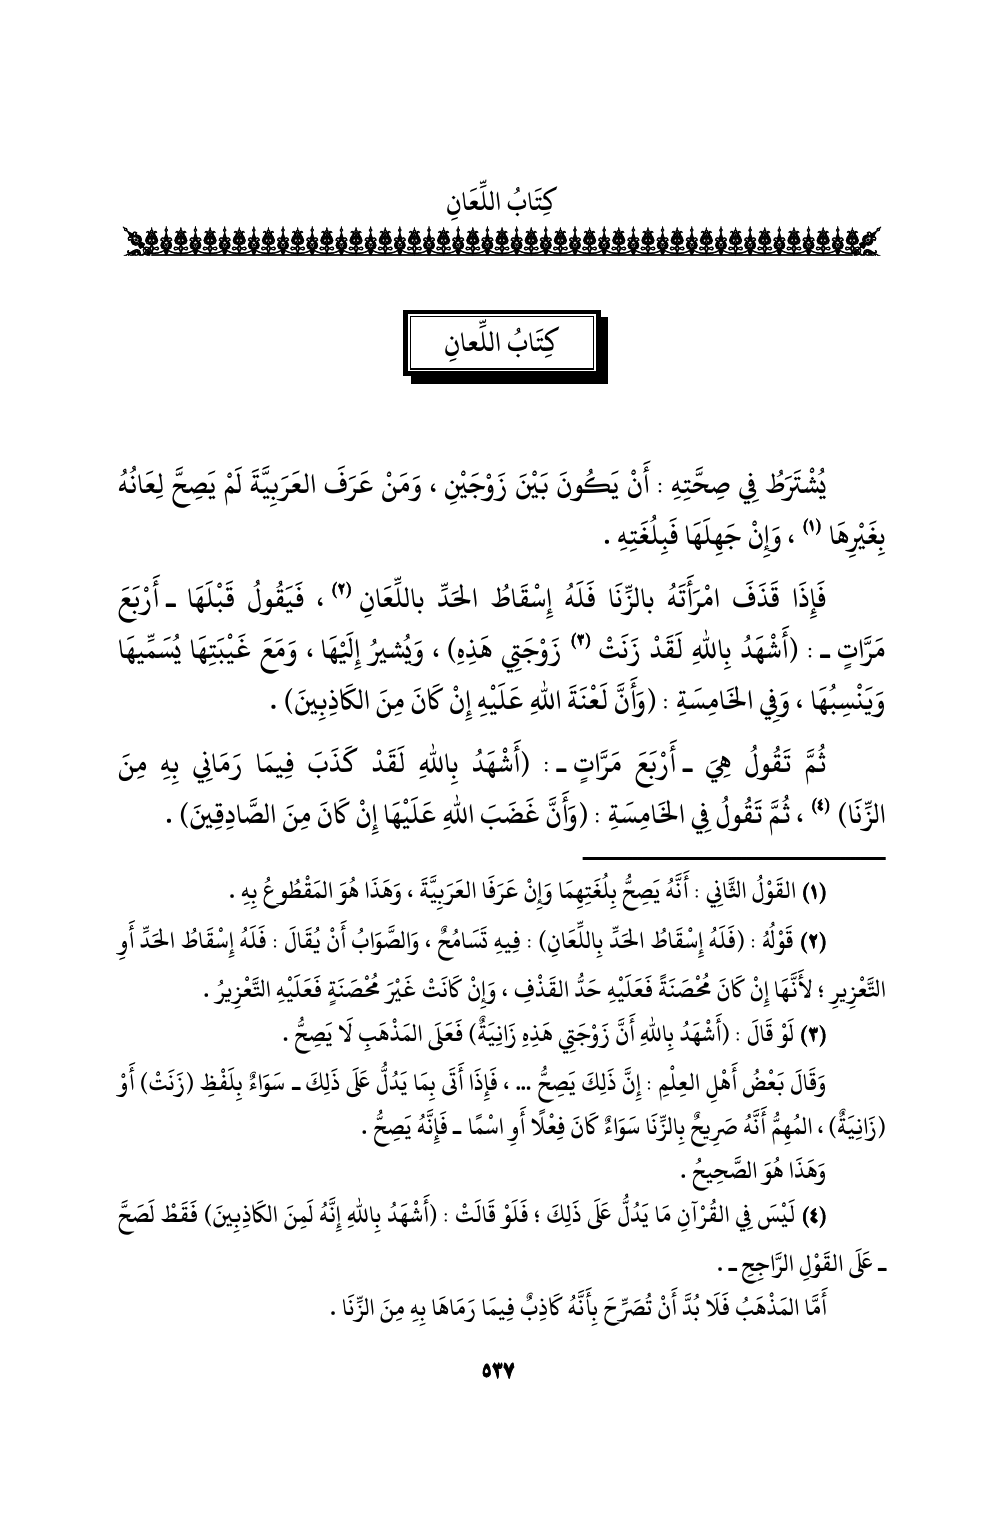 كِتَابُ اللِّعَانِ
كِتَابُ اللِّعانِ
يُشْتَرَطُ فِي صِحَّتِهِ : أَنْ يَكُونَ بَيْنَ زَوْجَيْنِ ، وَمَنْ عَرَفَ العَرَبِيَّةَ لَمْ يَصِحَّ لِعَانُهُ
بِغَيْرِهَا (١) ، وَإِنْ جَهِلَهَا فَبِلُغَتِهِ .
فَإِذَا قَذَفَ امْرَأَتَهُ بالزِّنَا فَلَهُ إِسْقَاطُ الحَدِّ باللِّعَانِ (٢) ، فَيَقُولُ قَبْلَهَا ـ أَرْبَعَ
مَرَّاتٍ ـ : (أَشْهَدُ بِاللهِ لَقَدْ زَنَتْ (٣) زَوْجَتِي هَذِهِ) ، وَيُشيرُ إِلَيْهَا ، وَمَعَ غَيْبَتِهَا يُسَمِّيهَا
وَيَنْسِبُهَا ، وَفِي الخَامِسَةِ : (وَأَنَّ لَعْنَةَ اللهِ عَلَيْهِ إِنْ كَانَ مِنَ الكَاذِبِينَ) .
ثُمَّ تَقُولُ هِيَ ـ أَرْبَعَ مَرَّاتٍ ـ : (أَشْهَدُ بِاللهِ لَقَدْ كَذَبَ فِيمَا رَمَانِي بِهِ مِنَ
الزِّنَا) (٤) ، ثُمَّ تَقُولُ فِي الخَامِسَةِ : (وَأَنَّ غَضَبَ اللهِ عَلَيْهَا إِنْ كَانَ مِنَ الصَّادِقِينَ) .
(١) القَوْلُ الثَّانِي : أَنَّهُ يَصِحُّ بِلُغَتِهِمَا وَإِنْ عَرَفَا العَرَبِيَّةَ ، وَهَذَا هُوَ المَقْطُوعُ بِهِ .
(٢) قَوْلُهُ : (فَلَهُ إِسْقَاطُ الحَدِّ بِاللِّعَانِ) : فِيهِ تَسَامُحٌ ، وَالصَّوَابُ أَنْ يُقَالَ : فَلَهُ إِسْقَاطُ الحَدِّ أَوِ
التَّعْزِيرِ ؛ لأَنَّهَا إِنْ كَانَ مُحْصَنَةً فَعَلَيْهِ حَدُّ القَذْفِ ، وَإِنْ كَانَتْ غَيْرَ مُحْصَنَةٍ فَعَلَيْهِ التَّعْزِيرُ .
(٣) لَوْ قَالَ : (أَشْهَدُ بِاللهِ أَنَّ زَوْجَتِي هَذِهِ زَانِيَةٌ) فَعَلَى المَذْهَبِ لَا يَصِحُّ .
وَقَالَ بَعْضُ أَهْلِ العِلْمِ : إِنَّ ذَلِكَ يَصِحُّ ... ، فَإِذَا أَتَى بِمَا يَدُلُّ عَلَى ذَلِكَ ـ سَوَاءٌ بِلَفْظِ (زَنَتْ) أَوْ
(زَانِيَةٌ) ، المُهِمُّ أَنَّهُ صَرِيحٌ بِالزِّنَا سَوَاءٌ كَانَ فِعْلًا أَوِ اسْمًا ـ فَإِنَّهُ يَصِحُّ .
وَهَذَا هُوَ الصَّحِيحُ .
(٤) لَيْسَ فِي القُرْآنِ مَا يَدُلُّ عَلَى ذَلِكَ ؛ فَلَوْ قَالَتْ : (أَشْهَدُ بِاللهِ إِنَّهُ لَمِنَ الكَاذِبِينَ) فَقَطْ لَصَحَّ
ـ عَلَى القَوْلِ الرَّاجِحِ ـ .
أَمَّا المَذْهَبُ فَلَا بُدَّ أَنْ تُصَرِّحَ بِأَنَّهُ كَاذِبٌ فِيمَا رَمَاهَا بِهِ مِنَ الزِّنَا .
٥٣٧